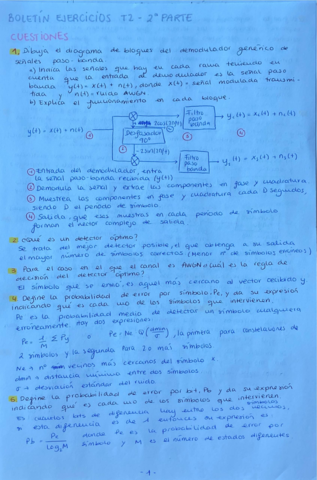 BOLETIN EJERCICIOS T2 - 2ª PARTE
CUESTIONES
1. Dibuja el diagrama de bloques del demodulador genérico de
señales paso banda.
a) Indica las señales que hay en cada rama teniendo en
cuenta que la entrada al demodulador es la señal paso
banda, y(t) = x(t) + n(t), donde x(t) = señal modulada transmi-
tida y n(t) = ruido AWGN
b) Explica el funcionamiento en cada bloque.
Filtro
paso
banda
y(t) = x(t) + n(t)
Desfasador
90°
Filtro
paso
banda
① Entrada del demodulador: entra
la señal paso-banda recibida (y(t))
② Demodula la señal y extrae las componentes en fase y cuadratura
③ Muestrea las componentes en fase y cuadratura cada D segundos,
siendo D el periodo de símbolo
④ Salida, que esas muestras en cada periodo de símbolo
forman el vector complejo de salida
2. ¿Qué es un detector óptimo?
Se trata del mejor detector posible, el que obtenga a su salida
el mayor número de símbolos correctos (menor nº de símbolos erróneos)
3. Para el caso en el que el canal es AWGN ¿cuál es la regla de
decisión del detector óptimo?
El símbolo que se envió, es aquel más cercano al vector recibido y
4. Define la probabilidad de error por símbolo, Ps, y da su expresión
indicando qué es cada uno de los símbolos que intervienen.
Ps es la probabilidad media de detectar un símbolo cualquiera
erróneamente, hay dos expresiones:
la primera para constelaciones de
2 símbolos y la segunda para 2 o más símbolos
dmin = distancia mínima entre dos símbolos
σ = desviación estándar del ruido
5. Define la probabilidad de error por bit, Pb y da su expresión
indicando qué es cada uno de los símbolos que intervienen
donde Ps es la probabilidad de error por
símbolo y M es el número de estados diferentes
- 1 -